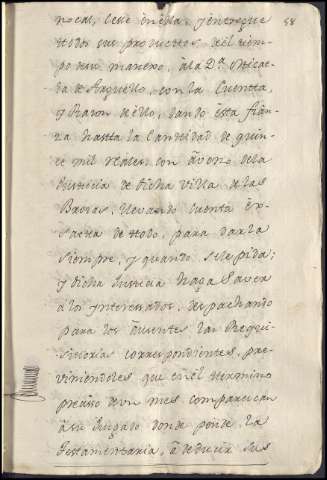 58
nocal, Cese en ella, y entregue
todos sus productos del tiem-
po de su manexo, a la D.ª Mica-
da de Arguello, con la Cuenta,
y Razon de ello, dando esta fian-
za hasta la Cantidad de quin-
ce mil reales con avono de la
Justicia de dicha villa de las
Brozas, llevando quenta ex-
sacta de todo, para darla
siempre, y quando se le pida;
y dicha Justicia haga saver
a los Ynteresados, despachando
para los ausentes las Requi-
sitorias correspondientes, pre-
viniendoles que en el termino
preciso de un mes comparezcan
a su Juzgado donde pende la
testamentaria, a deducir sus